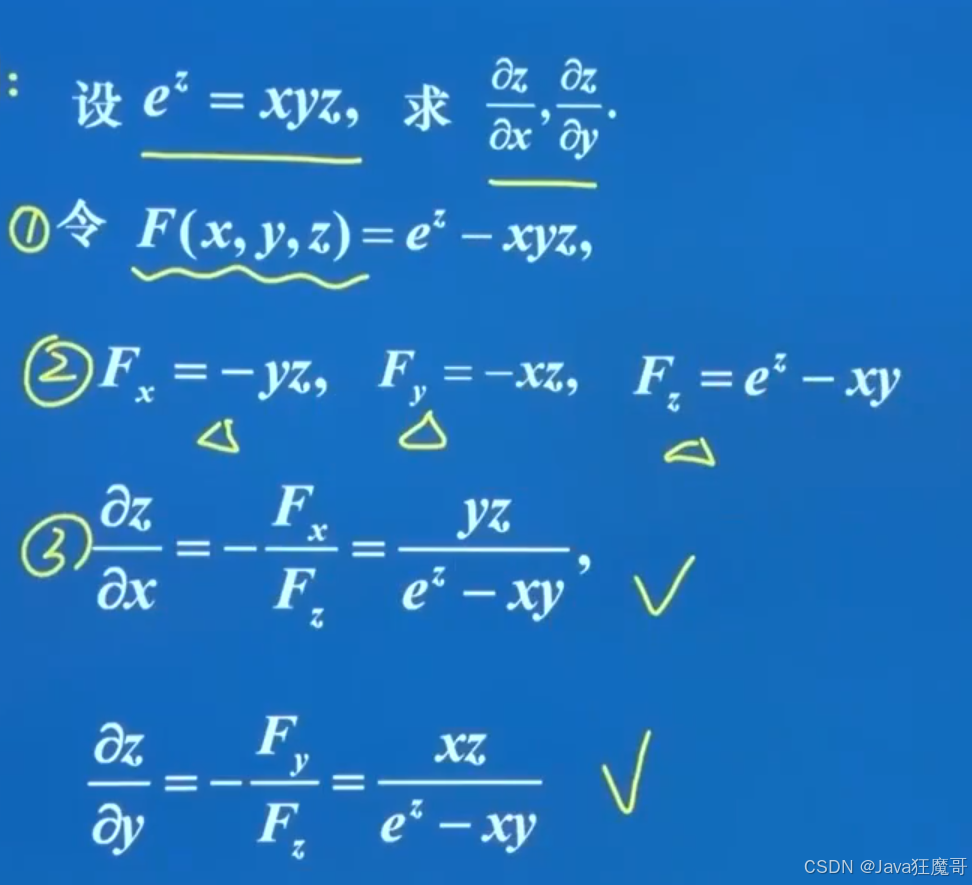 : 设 e^z = xyz, 求 ∂z/∂x, ∂z/∂y.
① 令 F(x, y, z) = e^z − xyz,
② F_x = −yz, F_y = −xz, F_z = e^z − xy
③ ∂z/∂x = −F_x/F_z = yz/(e^z − xy), ✓
∂z/∂y = −F_y/F_z = xz/(e^z − xy) ✓
CSDN @Java狂魔哥